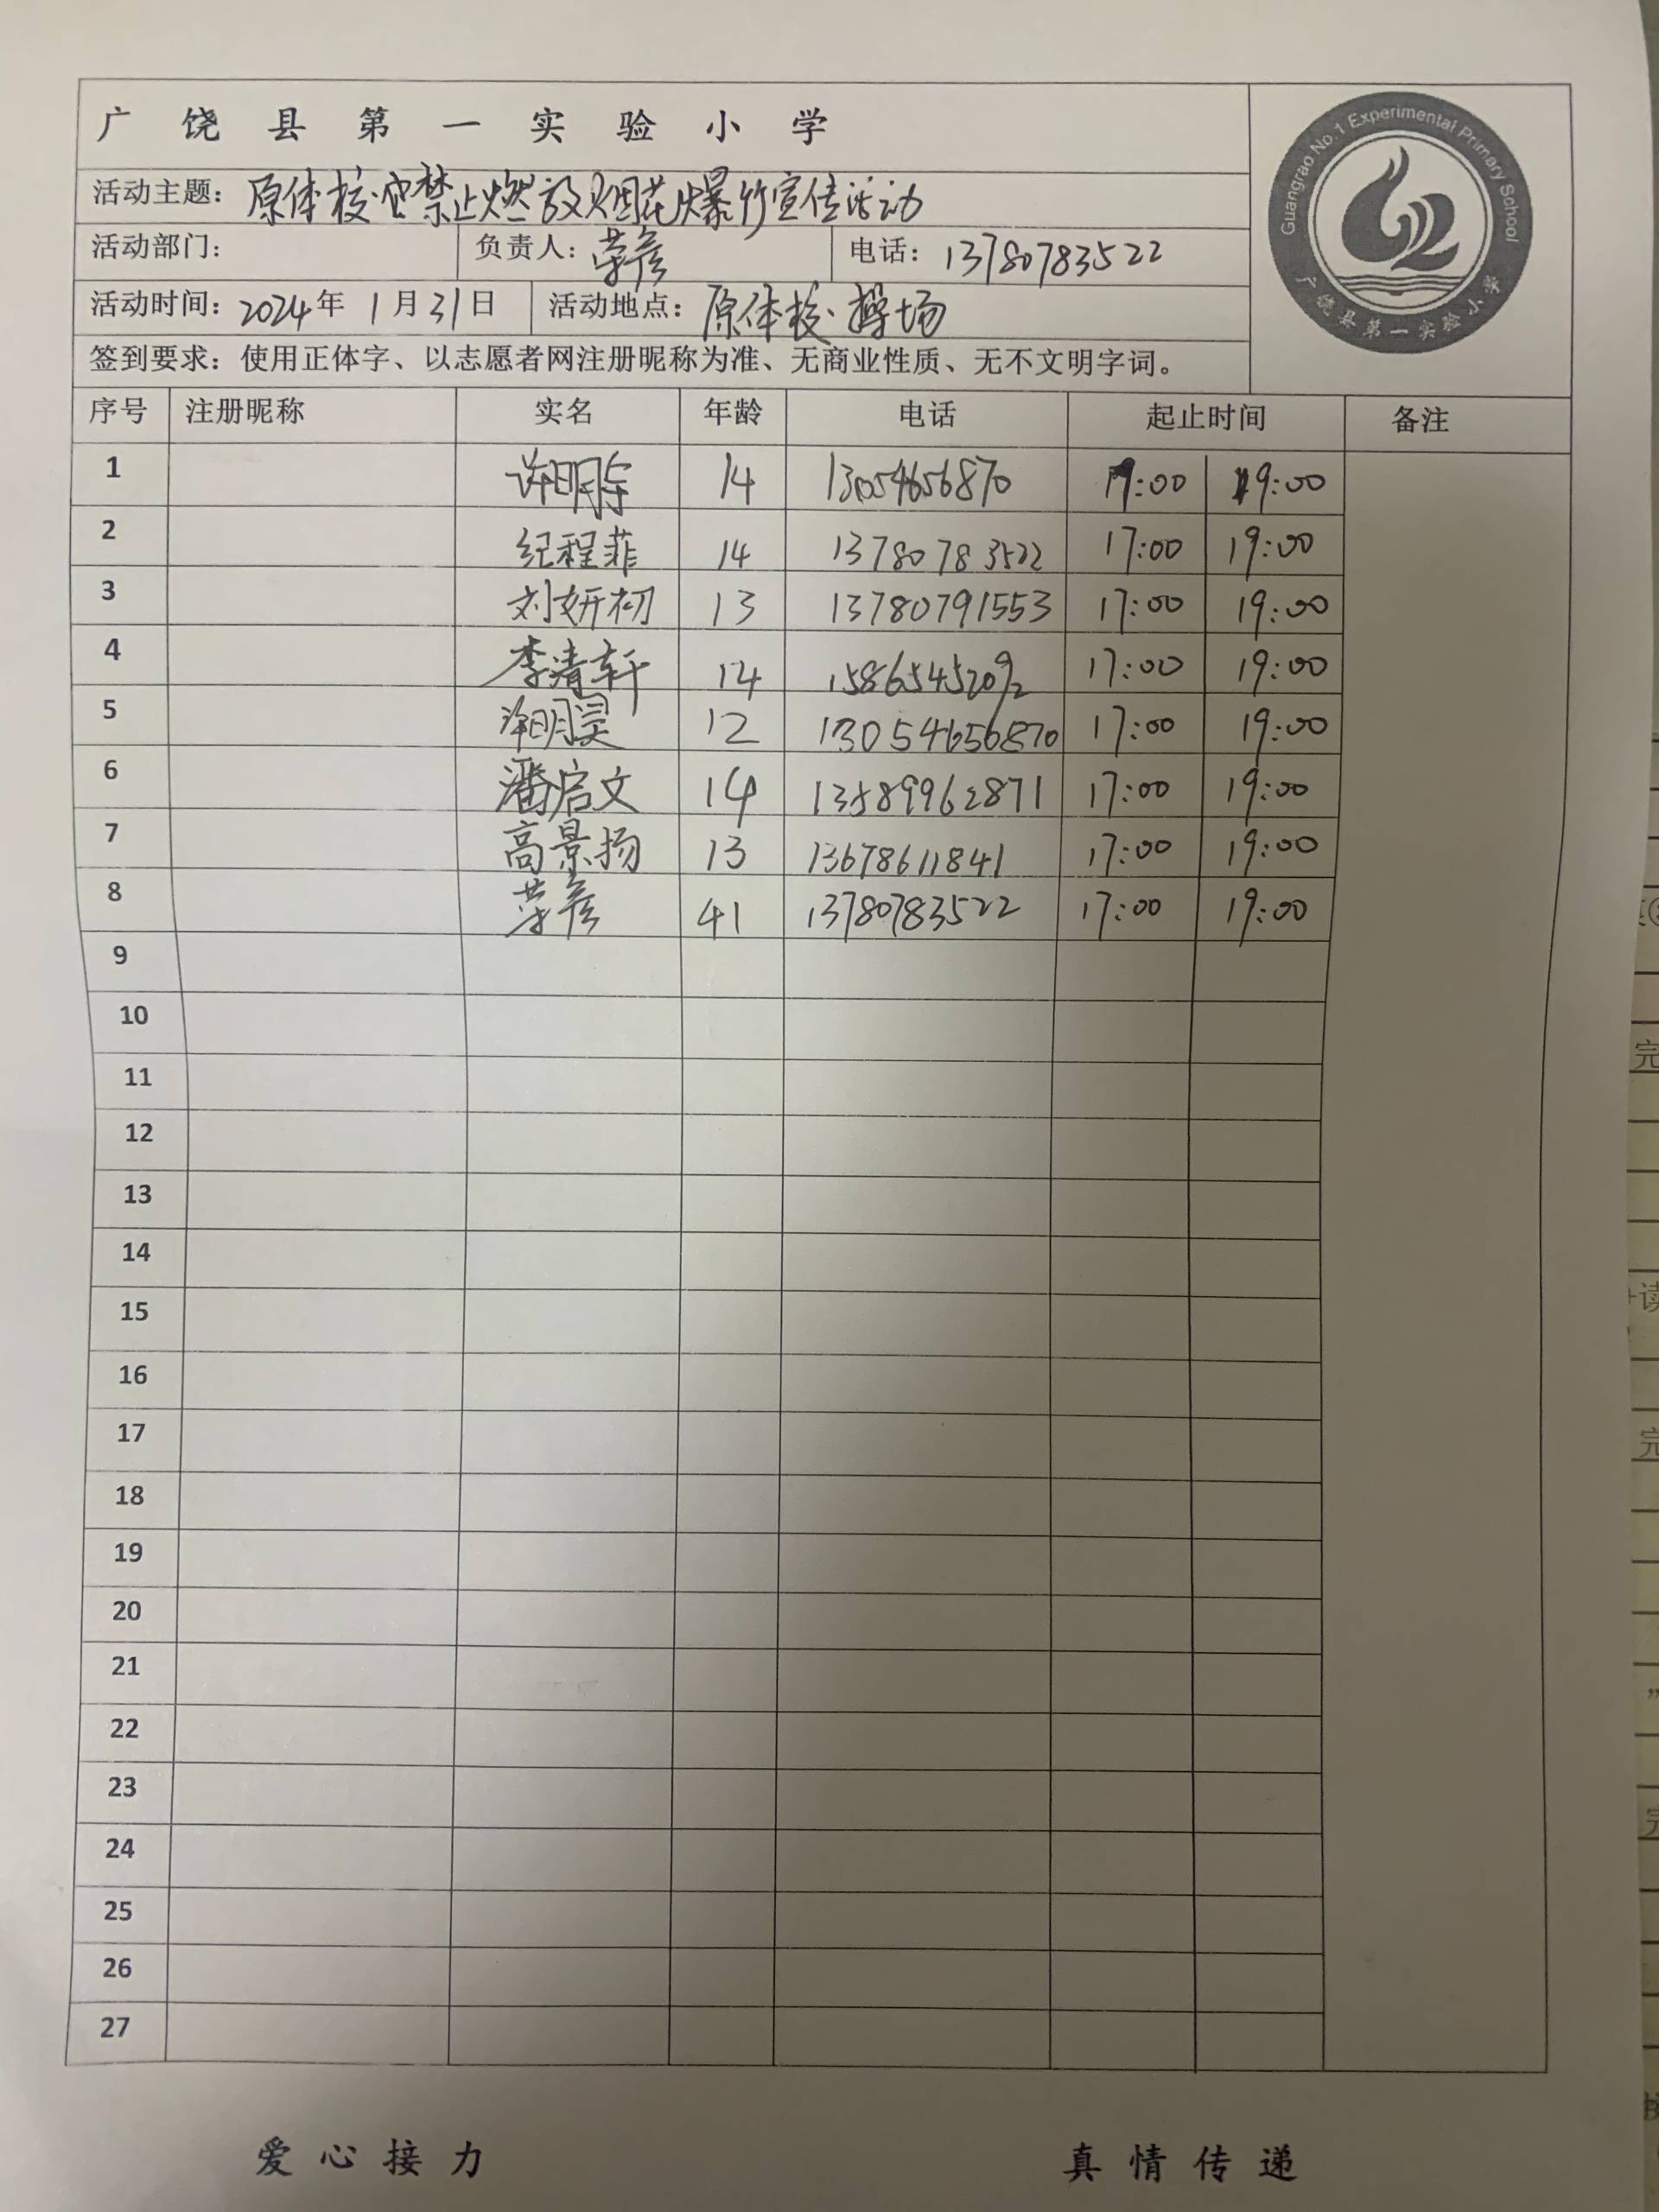 广饶县第一实验小学
Guangrao No.1 Experimental Primary School
广饶县第一实验小学
活动主题：原体校 禁止燃放烟花爆竹宣传活动
活动部门： 负责人：荣彦 电话：13780783522
活动时间：2024年1月31日 活动地点：原体校操场
签到要求：使用正体字、以志愿者网注册昵称为准、无商业性质、无不文明字词。
序号 注册昵称 实名 年龄 电话 起止时间 备注
1 许明宇 14 13054656870 17:00 19:00
2 纪程菲 14 13780783522 17:00 19:00
3 刘妍初 13 13780791553 17:00 19:00
4 李清轩 14 17:00 19:00
5 许明昊 12 13054656870 17:00 19:00
6 潘启文 14 13589962871 17:00 19:00
7 高景扬 13 13678611841 17:00 19:00
8 荣彦 41 13780783522 17:00 19:00
9
10
11
12
13
14
15
16
17
18
19
20
21
22
23
24
25
26
27
爱心接力 真情传递
完
+读
完